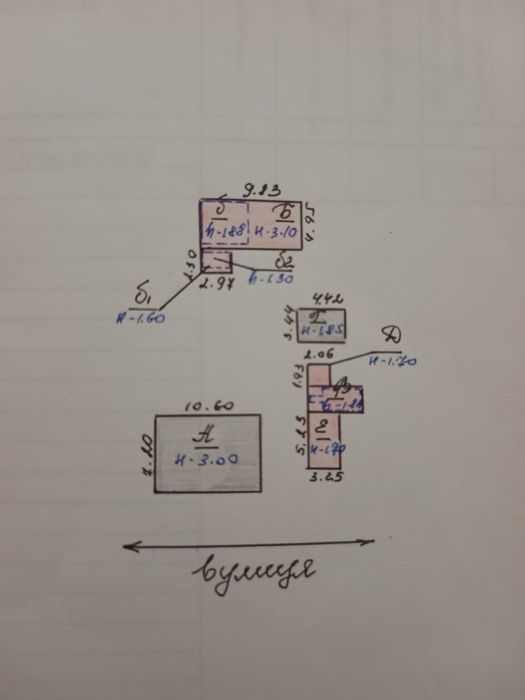 9.83
б Б
h-1.88 H-3.10
4.95
1.30
б2
2.97 h-1.30
б1
H-1.60
4.42
3.44
Г
H-1.85
Д
2.06
H-1.70
1.93
10.60
5.23
Е
H-1.70
А
7.20
H-3.00
3.25
вулиця